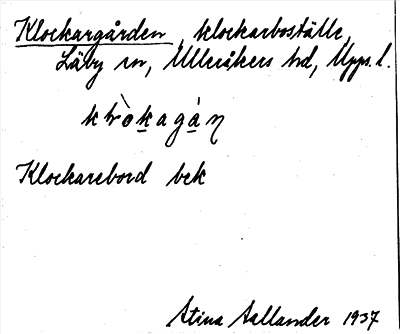 Klockargården, klockarboställe,
Läby sn, Ulleråkers hd, Upps. l.
klòkagán
Klockarebord bek
Stina Sallander 1937